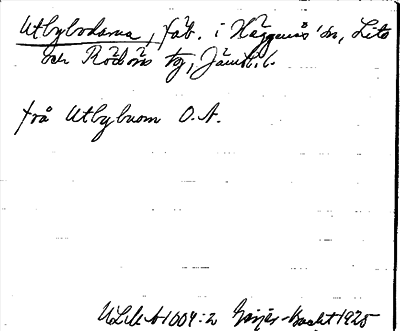 Utbybodarna, fäb. i Häggenås' sn, Lits
och Rödöns tg, Jämtl. l.
från Utbybuom O.A.
ULMA 1004:2 Geijer-Bucht 1925